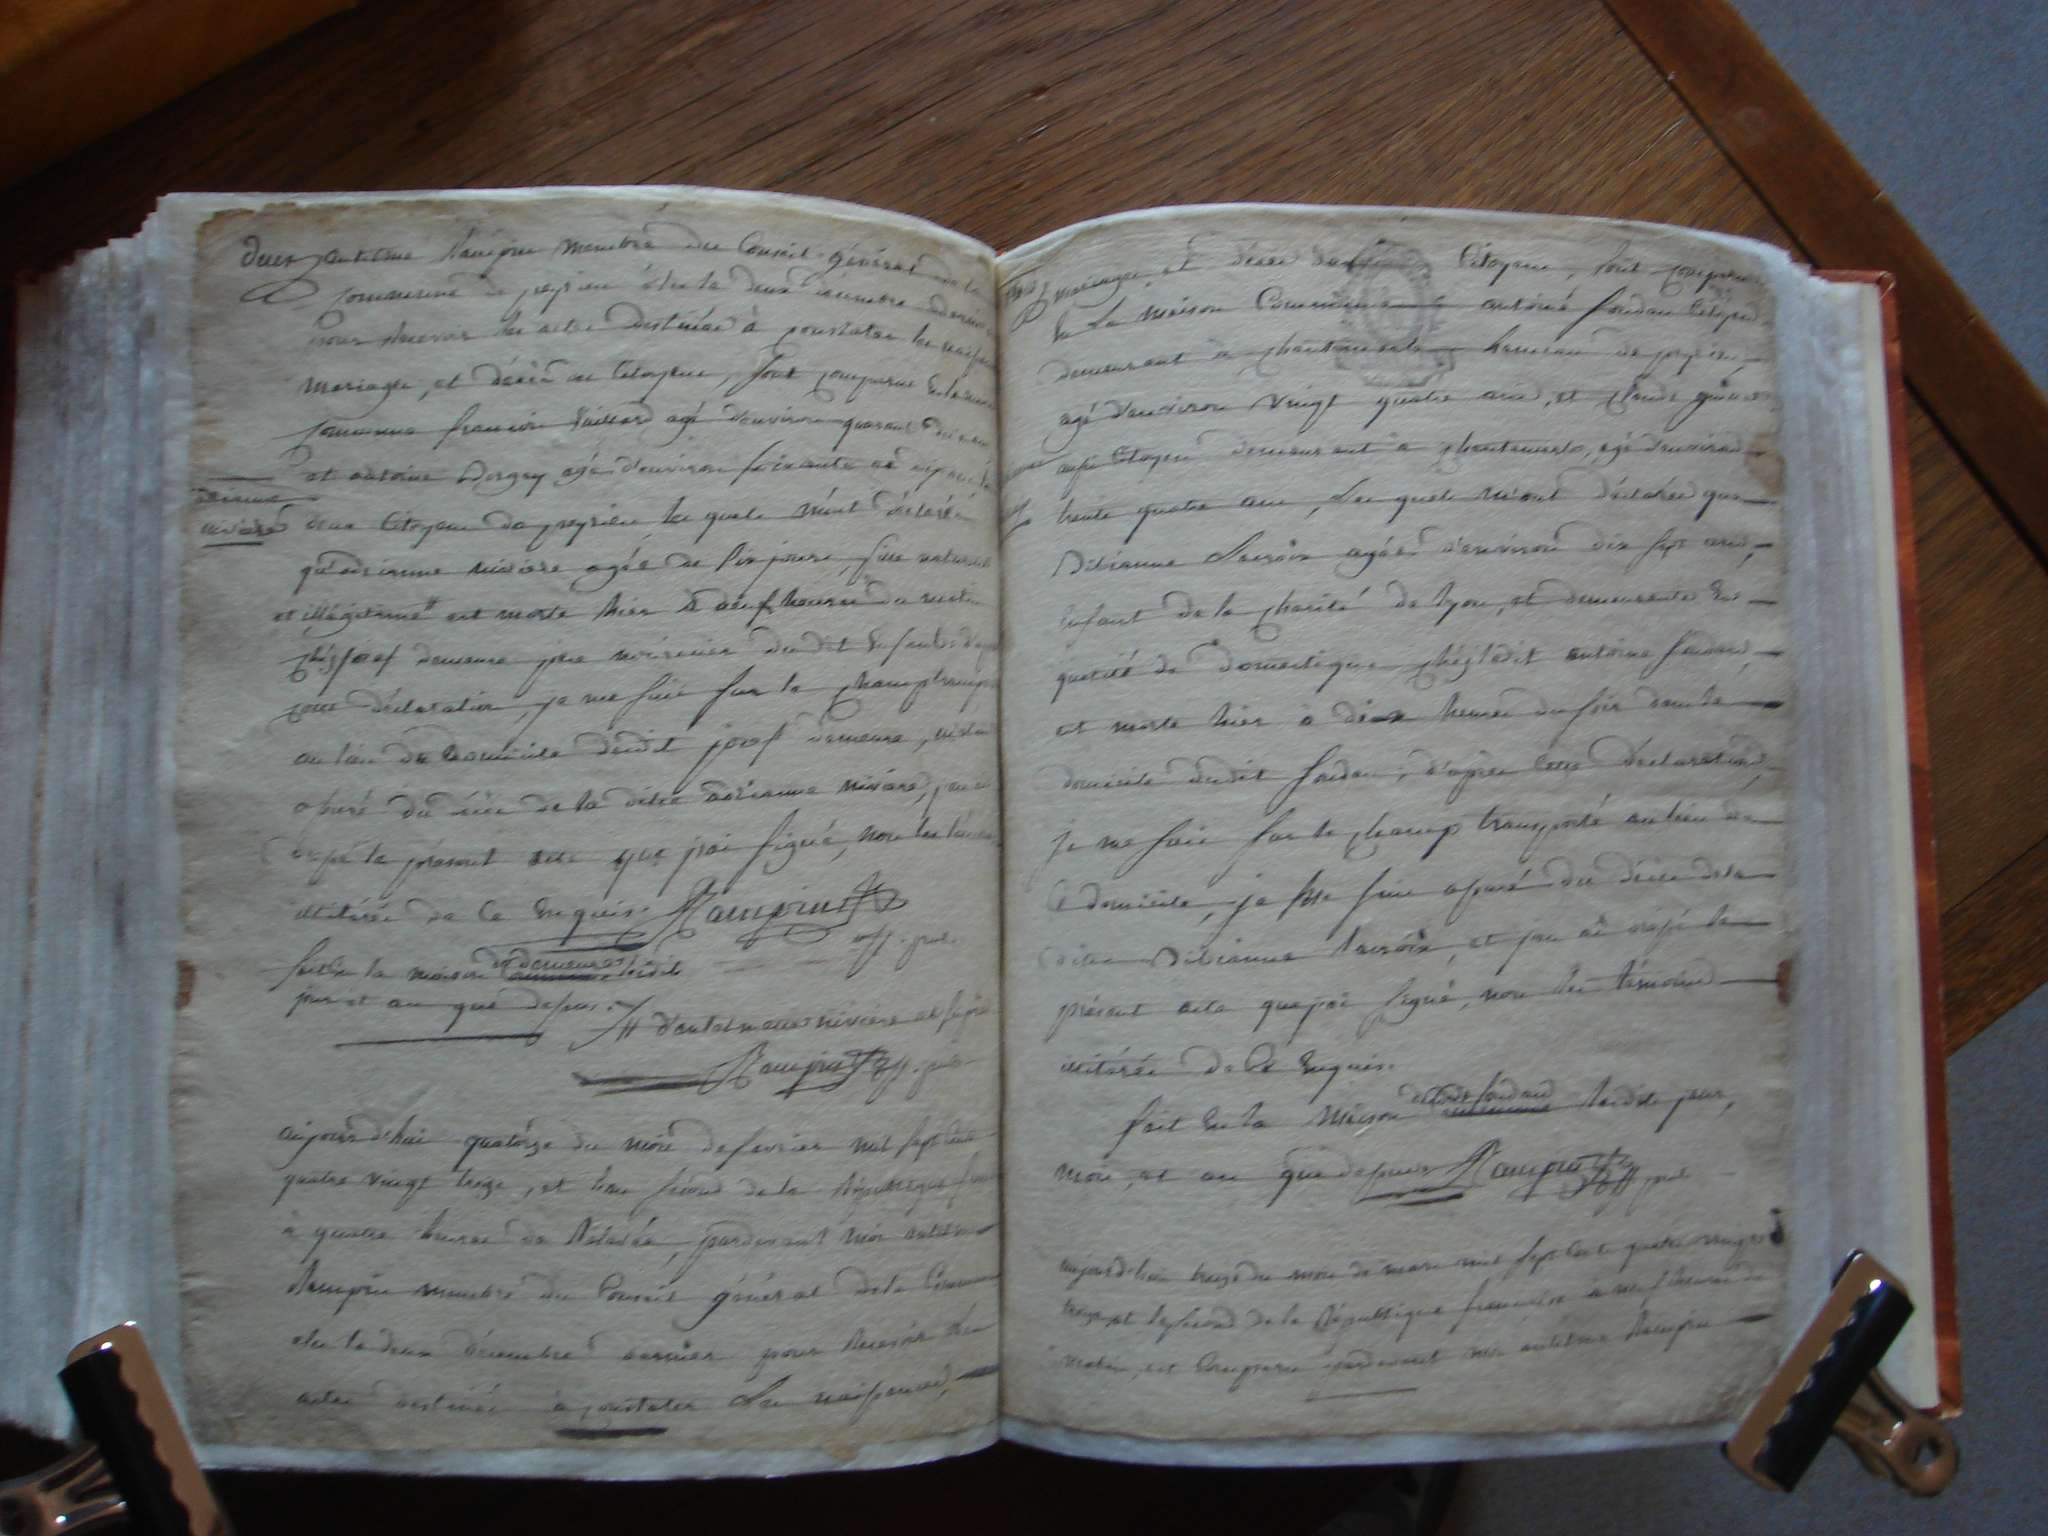 antelme Rampin membre du Conseil général de la
commune de peyrieu élu le deux décembre dernier
pour recevoir les actes destinées à constater les naissances
mariages, et décès des Citoyens, sont comparus en la maison
commune françois Vaillard agé d'environ quarante
et antoine Dergey agé d'environ soixante
deux Citoyens de peyrieu, les quels m'ont déclaré
qu'adrienne rivière agée de six jours, fille naturelle
et illégitime # est morte hier à neuf heures du matin
chéz josef demeure père nourricier du dit Enfant d'après
cette déclaration, je me suis sur le champ transporté
au lieu du domicile dudit josef demeure, m'étant
assuré du décès de la dite adrienne rivière, j'en ai
dressé le présent acte que j'ai signé, non les témoins
illitérés de ce Enquis. Rampin off. pub.
fait en la maison de demeure ledit
jour et an que dessus. # d'antelmette rivière
Rampin off. pub.
adrienne
rivière
aujourd'hui quatorze du mois de fevrier mil sept cent
quatre vingt treize, et l'an second de la République
à quatre heures de Relevée, pardevant moi antelme
Rampin membre du Conseil général de la Commune
élu le deux décembre dernier pour Recevoir les
actes destinés à constater Les naissances,
mariages, et décès des Citoyens, sont comparus
En La Maison Commune antoine foudau Citoyen
demeurant à chantemerle hameau de peyrieu,
agé d'environ vingt quatre ans, et
aussi Citoyen demeurant à chantemerle, agé d'environ
trente quatre ans, Les quels m'ont déclarés que
Dibianne Lacroix agées d'environ dix sept ans,
Enfant de la charité de lyon, et demeurante En
qualité de domestique chéz ledit antoine foudau,
est morte hier à deux heures du soir dans le
domicile dudit foudau, d'après cette Declaration,
je me suis sur le champ transporté au lieu de
Ce domicile, je me suis assuré du décès de la
dite Dibianne Lacroix, et j'en ai dréssé le
présent acte que j'ai signé, non les témoins
illitérés de Ce Enquis.
fait En la Maison dudit foudau ledit jour,
mois, et an que dessus Rampin off. pub.
aujourd'hui treize du mois de mars mil sept cent quatre vingts
treize et le second de la République françoise à neuf heures du
matin, est Comparu pardevant moi antelme Rampin